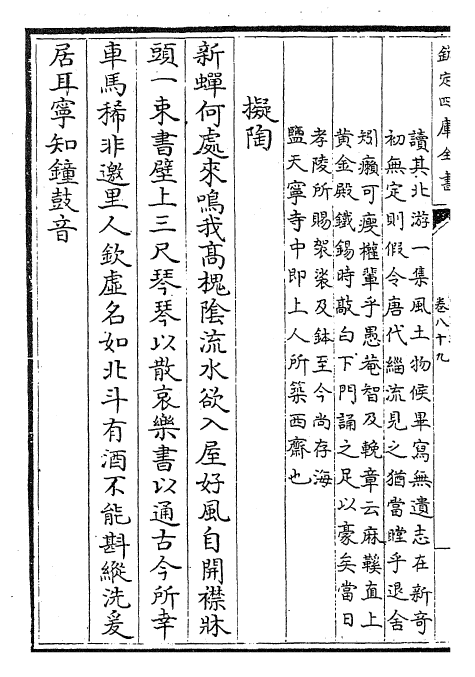 欽定四庫全書
卷八十九
讀其北游一集風土物候畢寫無遺志在新奇
初無定則假令唐代緇流見之猶當瞠乎退舍
矧癩可瘦權輩乎愚菴智及輓章云麻鞵直上
黃金殿鐵錫時敲白下門誦之足以豪矣當日
孝陵所賜袈裟及鉢至今尚存海
鹽天寧寺中即上人所築西齋也
擬陶
新蟬何處來鳴我髙槐陰流水欲入屋好風自開襟牀
頭一束書壁上三尺琴琴以散哀樂書以通古今所幸
車馬稀非邀里人欽虛名如北斗有酒不能斟縱洗爰
居耳寧知鐘鼓音